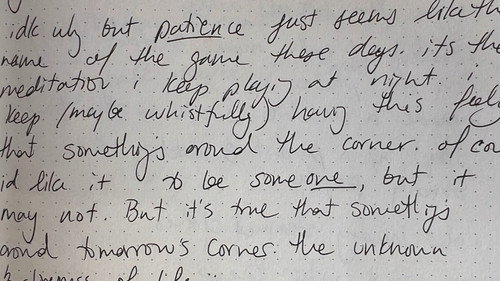 idk why but patience just seems like th
name of the game these days. its the
meditation i keep playing at night. i
keep (maybe whistfully) having this feel
that something's around the corner. of cou
id like it to be someone, but it
may not. But it's true that something's
around tomorrow's corner. the unknown
of life